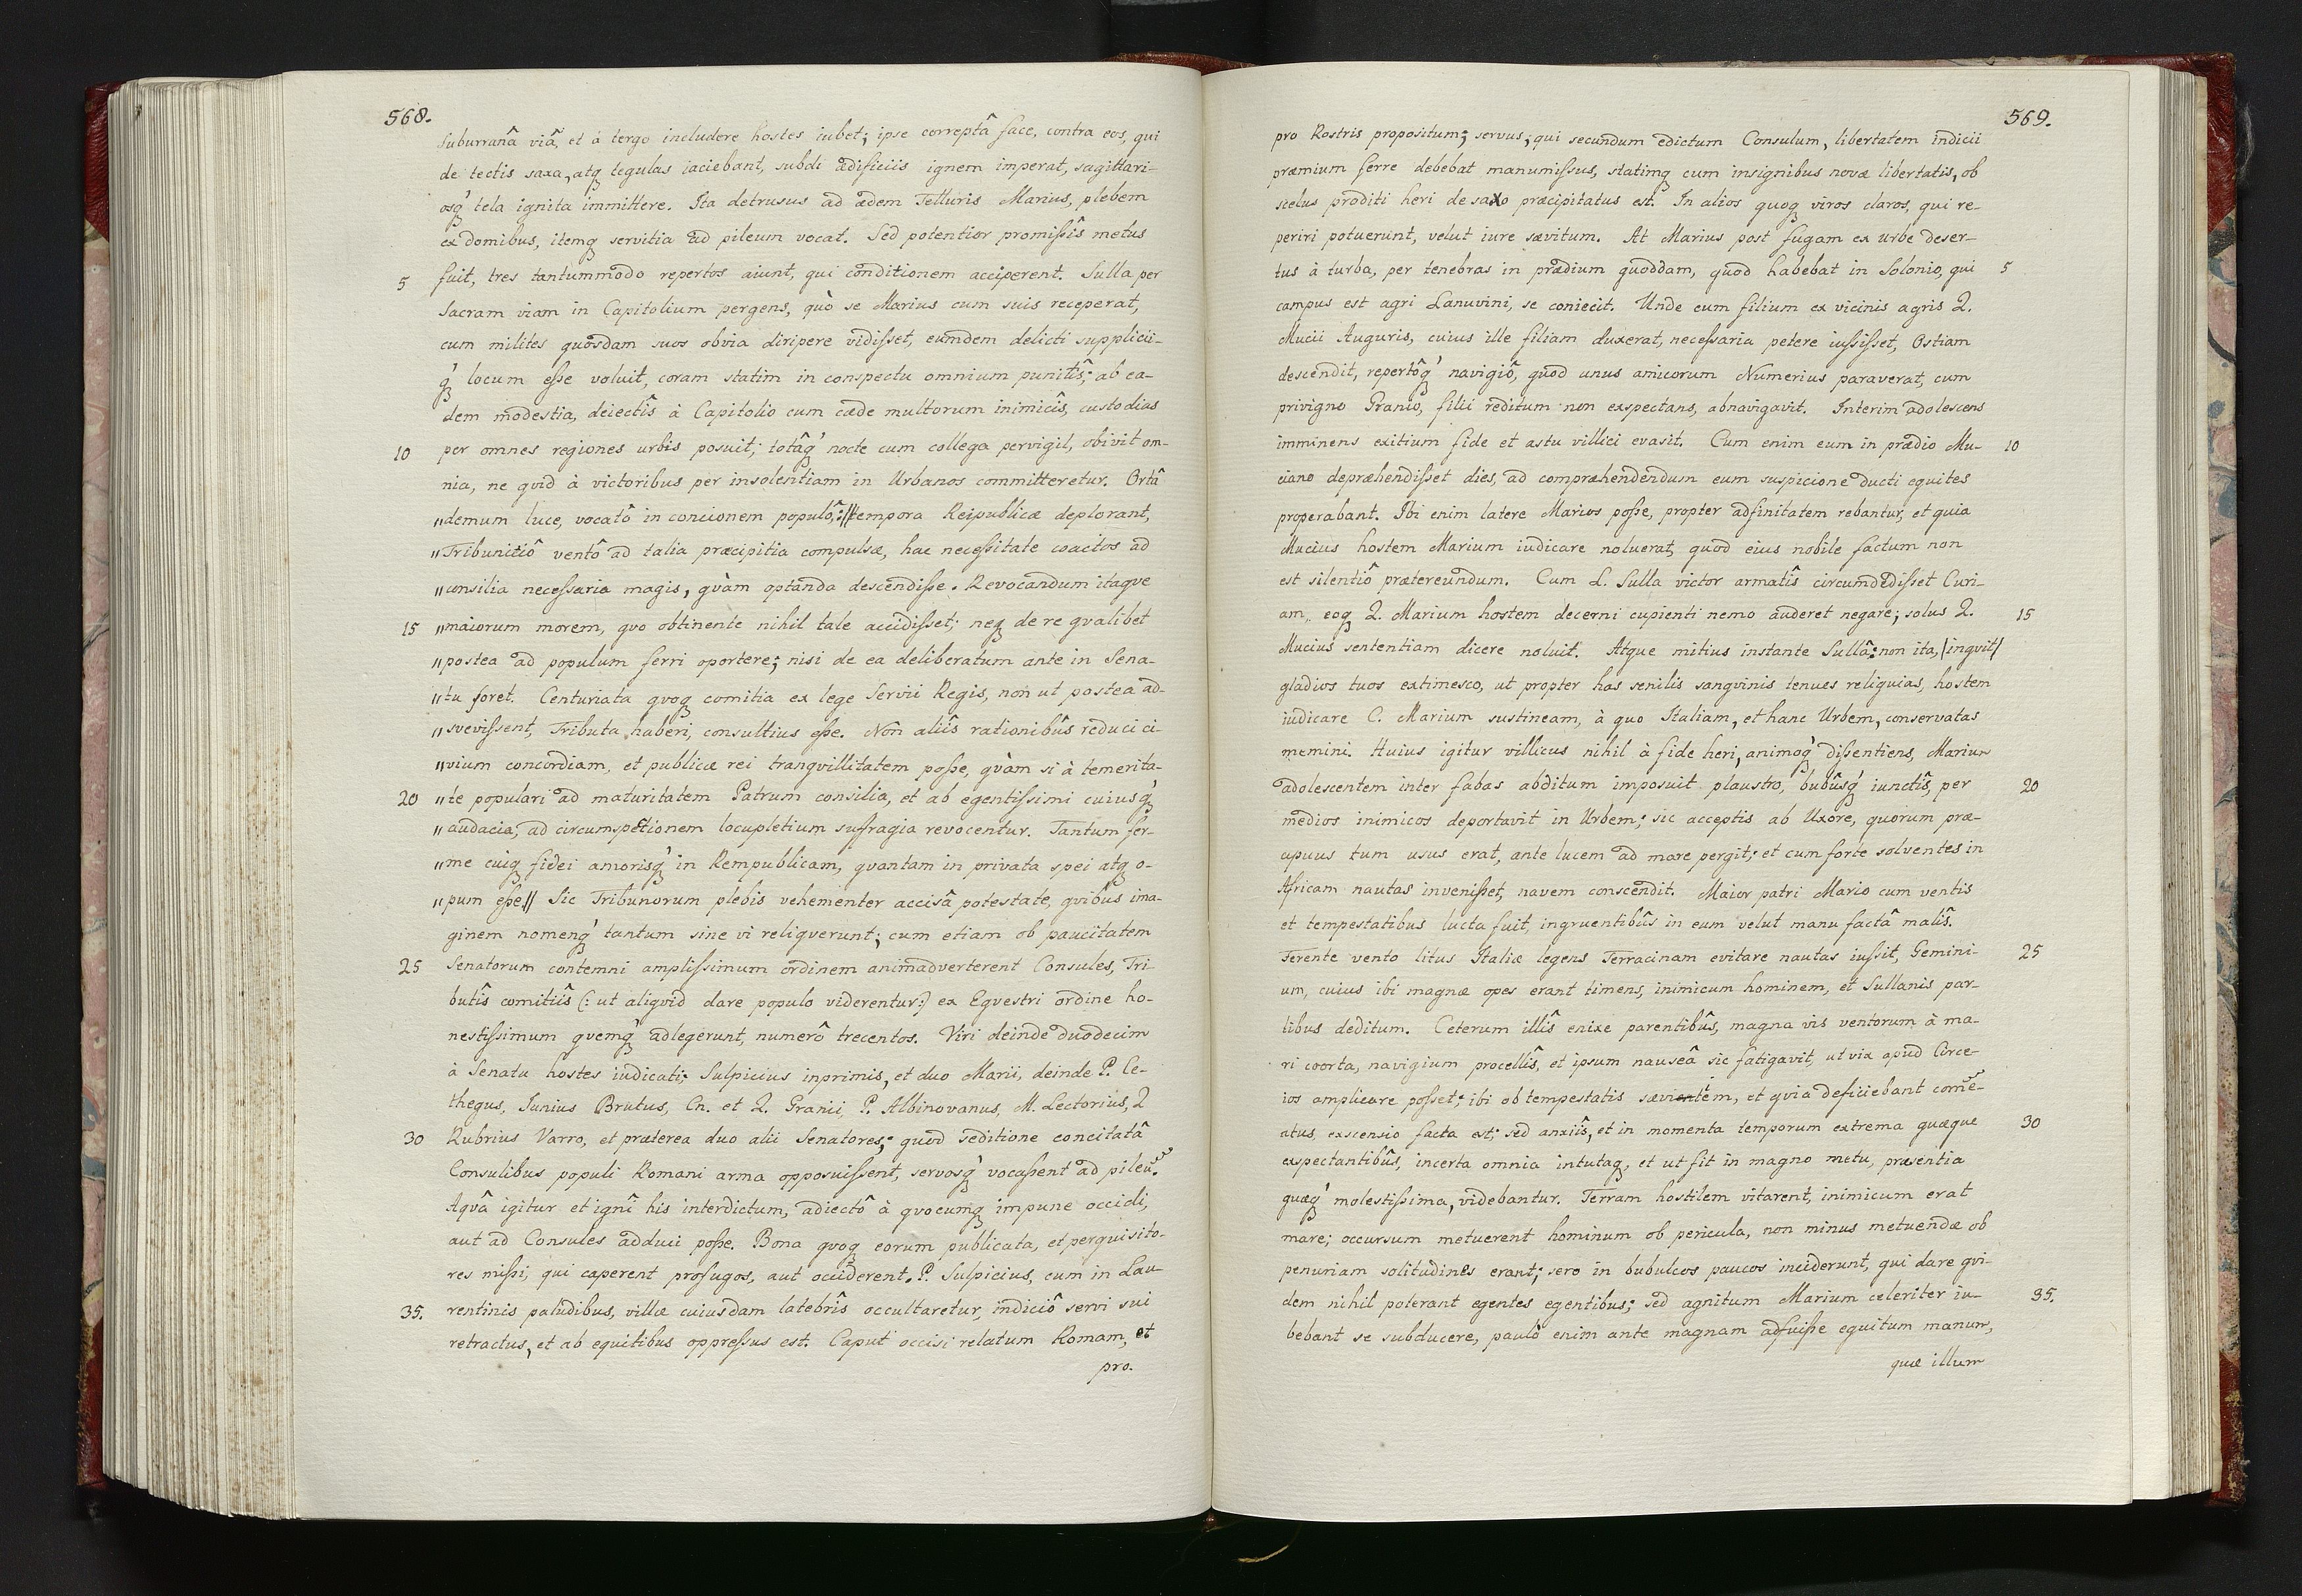 568.
Suburranâ viâ, et à tergo includere hostes iubet; ipse correptâ face, contra eos, qui
de tectis saxa, atq tegulas iaciebant, subdi ædificiis ignem imperat, sagittari-
osq́ tela ignita immittere. Ita detrusus ad ædem Telluris Marius, plebem
ex domibus, itemq servitia ad pileum vocat. Sed potentior promissîs metus
5 fuit, tres tantummodo repertos aiunt, qui conditionem acciperent. Sulla per
Sacram viam in Capitolium pergens, quò se Marius cum suis receperat,
cum milites quosdam suos obvia diripere vidisset, eumdem delicti supplicii-
q́ locum esse voluit, coram statim in conspectu omnium punitîs; ab ea-
dem modestia, deiectîs à Capitolio cum cæde multorum inimicîs, custodias
10 per omnes regiones urbis posuit; totâq́ nocte cum collega pervigil, obivit om-
nia, ne quid à victoribus per insolentiam in Urbanos committeretur. Ortâ
"demum luce, vocatô in concionem populô; //tempora Reipublicæ deplorant,
"Tribunitiô ventô ad talia præcipitia compulsæ, hac necessitate coactos ad
"consilia necessaria magis, qvàm optanda descendisse. Revocandum itaqve
15 "maiorum morem, qvo obtinente nihil tale accidisset; neq de re qvalibet
"postea ad populum ferri oportere; nisi de ea deliberatum ante in Sena-
"tu foret. Centuriata qvoq comitia ex lege Servii Regis, non ut postea ad-
"svevissent, Tributa haberi, consultius esse. Non aliîs rationibûs reduci ci-
"vium concordiam, et publicæ rei tranqvillitatem posse, qvàm si à temerita-
20 "te populari ad maturitatem Patrum consilia, et ab egentissimi cuiusq́
"audacia, ad circumspectionem locupletium suffragia revocentur. Tantum fer-
"me cuiq fidei amorisq́ in Rempublicam, qvantam in privata spei atq o-
"pum esse// Sic Tribunorum plebis vehementer accisâ potestate, qvibus ima-
ginem nomenq́ tantum sine vi reliqverunt; cum etiam ob paucitatem
25 Senatorum contemni amplissimum ordinem animadverterent Consules, Tri-
butîs comitiîs (: ut aliqvid dare populo viderentur:) ex Eqvestri ordine ho-
nestissimum qvemq́ adlegerunt, numerô trecentos. Viri deinde duodecim
à Senatu hostes iudicati; Sulpicius inprimis, et duo Marii, deinde P. Ce-
thegus, Iunius Brutus, Cn. et Q. Granii, P. Albinovanus, M. Lectorius, Q
30 Rubrius Varro, et præterea duo alii Senatores; quod seditione concitatâ
Consulibus populi Romani arma opposuissent, servosq́ vocassent ad pileu͠.
Aqvâ igitur et ignî his interdictum, adiectô à qvocumq impune occidi,
aut ad Consules adduci posse. Bona qvoq eorum publicata, et perquisito-
res missi, qui caperent profugos, aut occiderent. P. Sulpicius, cum in Lau-
35. rentinis paludibus, villæ cuiusdam latebrîs occultaretur, indiciô servi sui
retractus, et ab equitibus oppressus est. Caput occisi relatum Romam, et
pro.
569.
pro Rostris propositum; servus, qui secundum edictum Consulum, libertatem indicii
præmium ferre debebat manumissus, statimq cum insignibus novæ libertatis, ob
scelus proditi heri de saxo præcipitatus est. In alios quoq viros claros, qui re-
periri potuerunt, velut iure sævitum. At Marius post fugam ex Urbe deser-
tus à turba, per tenebras in prædium quoddam, quod habebat in Solonio, qui 5
campus est agri Lanuvini, se coniecit. Unde cum filium ex vicinis agris Q.
Mucii Auguris, cuius ille filiam duxerat, necessaria petere iussisset, Ostiam
descendit, repertôq́ navigiô, quod unus amicorum Numerius paraverat, cum
privigno Granio, filii reditum non exspectans, abnavigavit. Interim adolescens
imminens exitium fide et astu villici evasit. Cum enim eum in prædio Mu- 10
ciano depræhendisset dies, ad compræhendendum eum suspicione ducti equites
properabant. Ibi enim latere Marios posse, propter adfinitatem rebantur, et quia
Mucius hostem Marium iudicare noluerat, quod eius nobile factum non
est silentiô prætereundum. Cum L. Sulla victor armatîs circumdedisset Curi-
am, eoq Q. Marium hostem decerni cupienti nemo auderet negare; solus Q. 15
Mucius sententiam dicere noluit. Atque mitius instante Sullâ: non ita, /inqvit/
gladios tuos extimesco, ut propter has senilis sangvinis tenues reliquias, hostem
iudicare C. Marium sustineam, à quo Italiam, et hanc Urbem, conservatas
memini. Huius igitur villicus nihil à fide heri, animoq́ dissentiens, Marium
adolescentem inter fabas abditum imposuit plaustro, bubûsq́ iunctîs, per 20
medios inimicos deportavit in Urbem; sic acceptis ab Uxore, quorum præ-
cipuus tum usus erat, ante lucem ad mare pergit; et cum forte solventes in
Africam nautas invenisset, navem conscendit. Maior patri Mario cum ventis
et tempestatibus lucta fuit, ingruentibûs in eum velut manu factâ malîs.
Ferente vento litus Italiæ legens Terracinam evitare nautas iussit, Gemini- 25
um, cuius ibi magnæ opes erant timens, inimicum hominem, et Sullanis par-
tibus deditum. Ceterum illîs enixe parentibûs, magna vis ventorum à ma-
ri coorta, navigium procellîs, et ipsum nauseâ sic fatigavit, ut vix apud Circe-
ios amplicare posset; ibi ob tempestatis sævitiem, et qvia deficiebant com͠e-
atus, exscensio facta est; sed anxiîs, et in momenta temporum extrema quæque 30
exspectantibûs, incerta omnia intutaq, et ut fit in magno metu, præsentia
quæq́ molestissima, videbantur. Terram hostilem vitarent, inimicum erat
mare; occursum metuerent hominum ob pericula, non minus metuendæ ob
penuriam solitudines erant; sero in bubulcos paucos inciderunt, qui dare qvi-
dem nihil poterant egentes egentibus; sed agnitum Marium celeriter iu- 35.
bebant se subducere, paulò enim ante magnam adfuisse equitum manum,
quæ illum